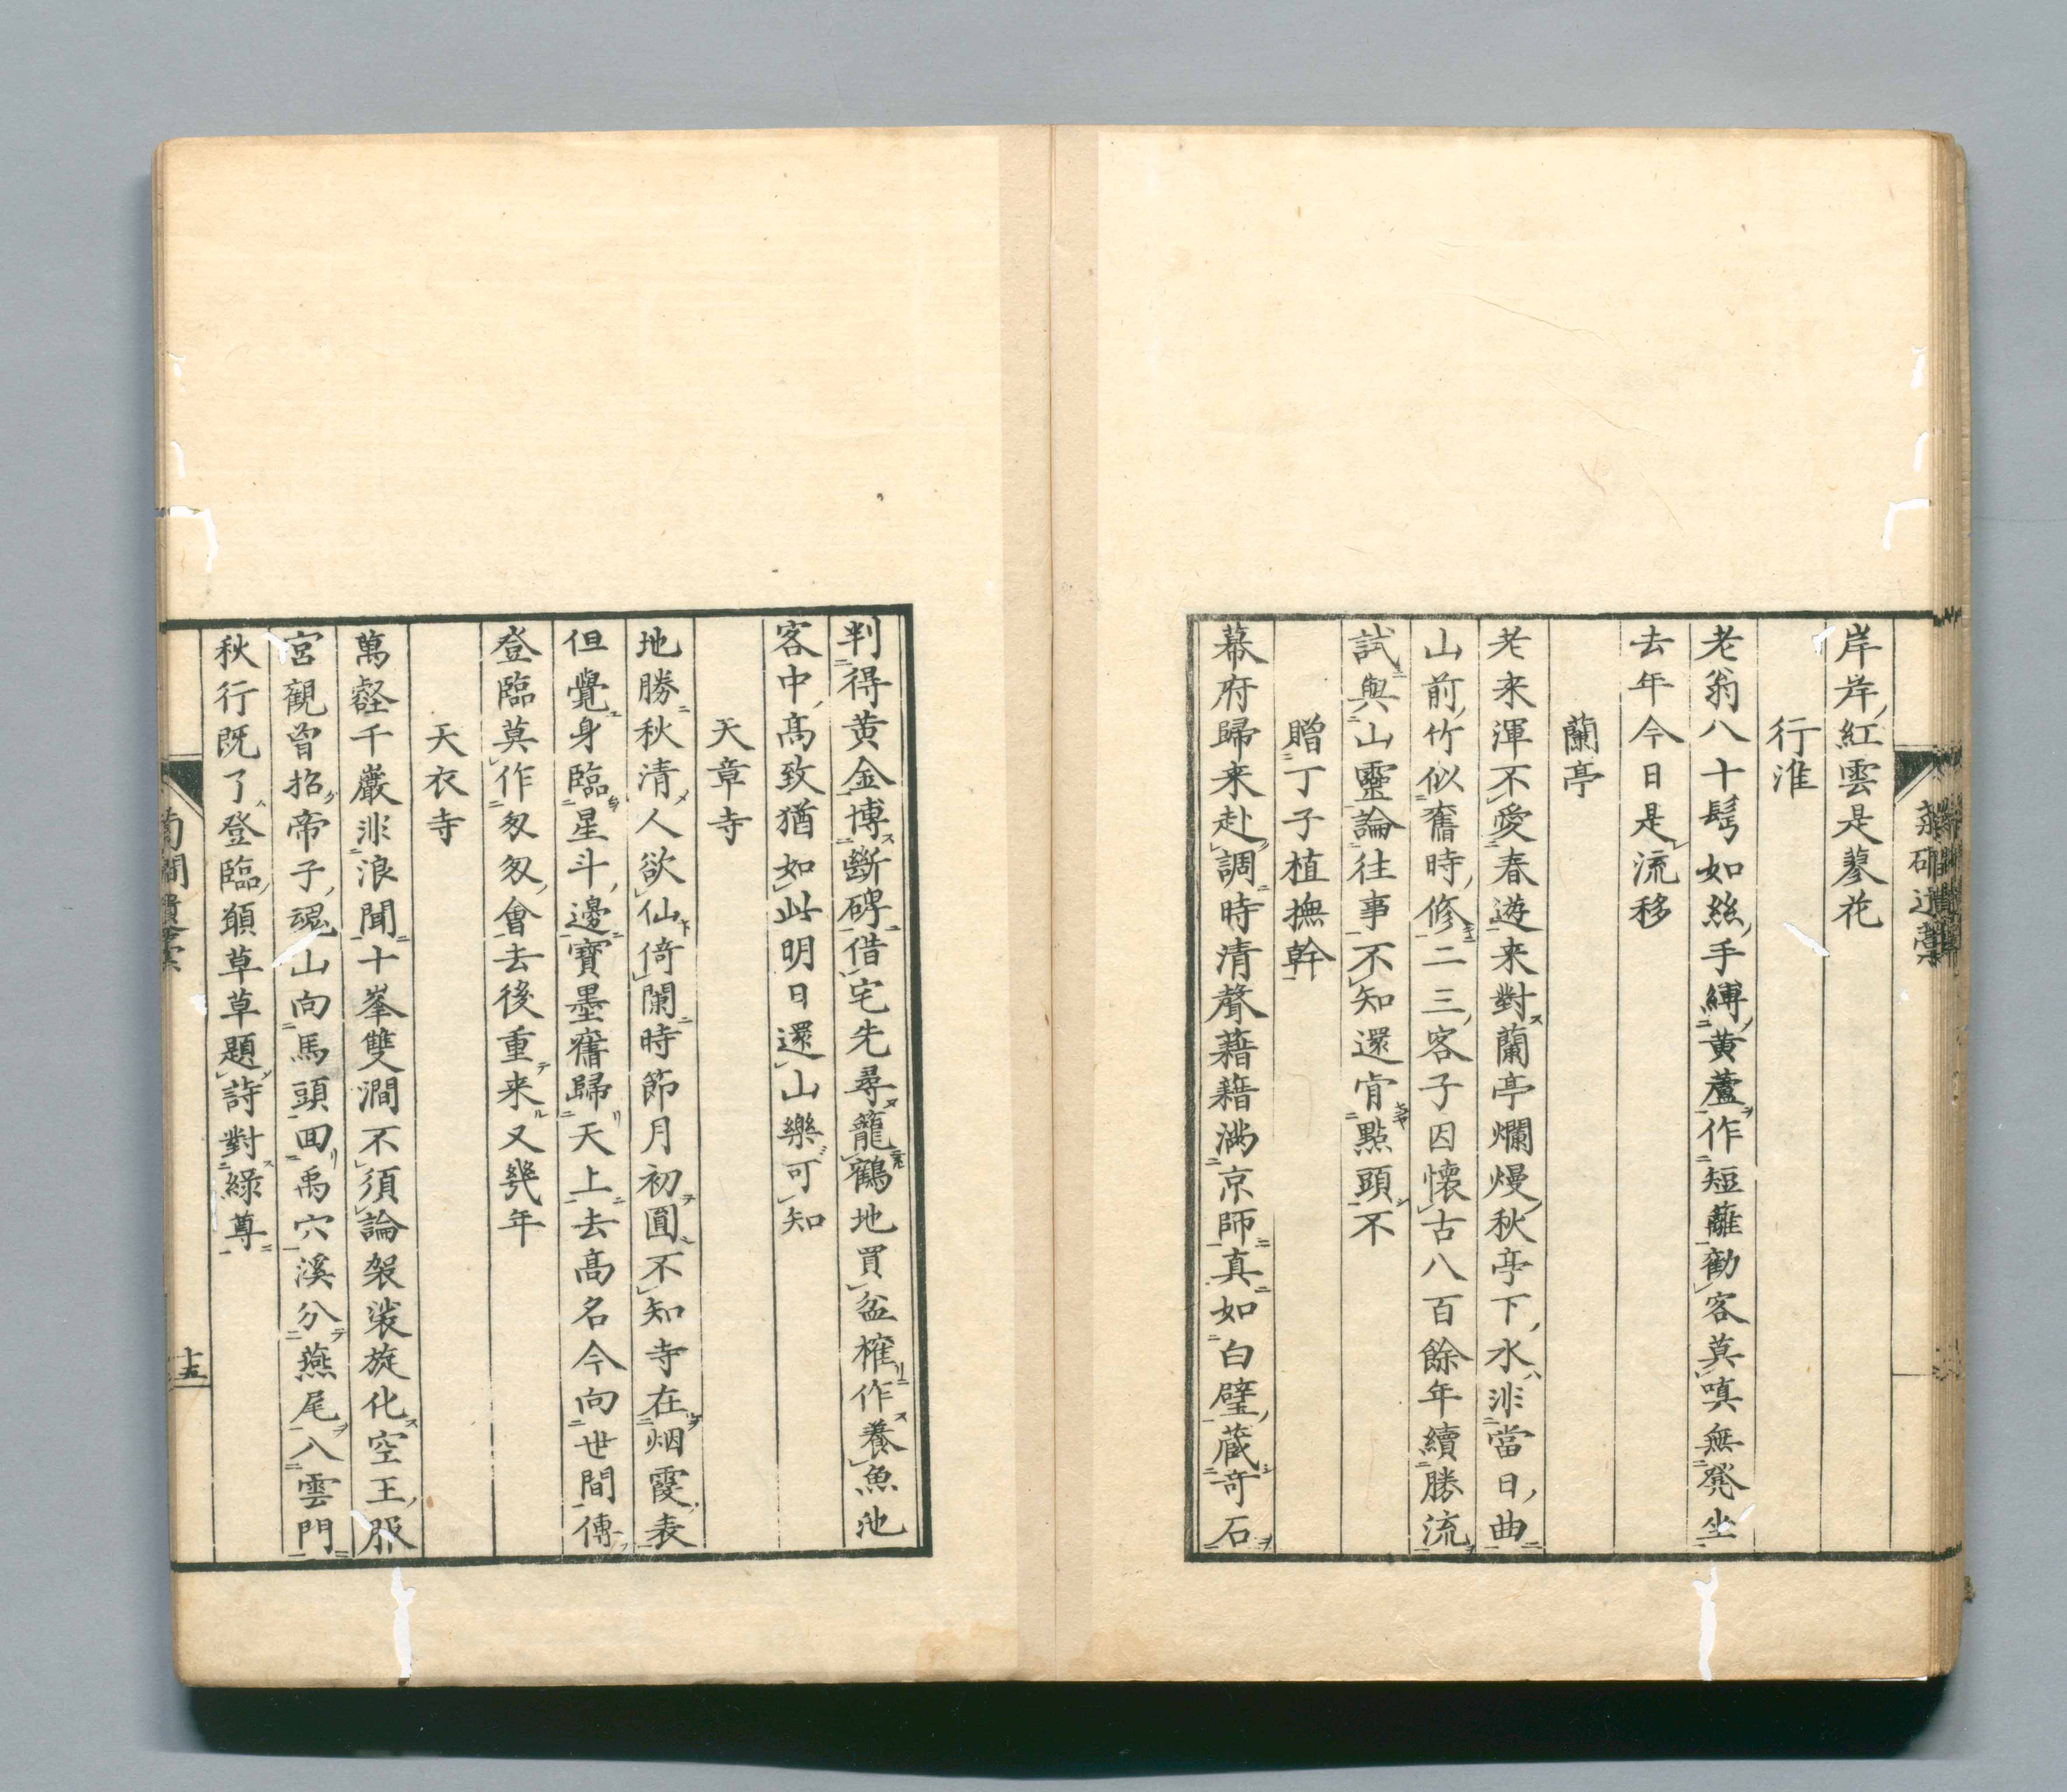 岸岸紅雲是蓼花
行淮
老翁八十鬂如絲手縛黄蘆作短蘺勸客莫嗔無凳坐
去年今日是流移
蘭亭
老来渾不愛春遊来對蘭亭爛熳秋亭下水非當日曲
山前竹似舊時修二三客子因懷古八百餘年續勝流
試與山靈論往事不知還肯點頭不
贈丁子植撫幹
幕府歸来赴調時清聲藉藉滿京師真如白璧蔵奇石
判得黄金博斷碑借宅先尋籠鶴地買盆權作養魚池
客中髙致猶如此明日還山樂可知
天章寺
地勝秋清人欲仙倚闌時節月初圓不知寺在烟霞表
但覺身臨星斗邊寶墨舊歸天上去髙名今向世間傳
登臨莫作匆匆會去後重来又幾年
天衣寺
萬壑千巖非浪聞十峯雙澗不須論袈裟旋化空王服
宮觀曾招帝子魂山向馬頭回禹穴溪分燕尾八雲門
秋行既了登臨願草草題詩對綠尊
十五